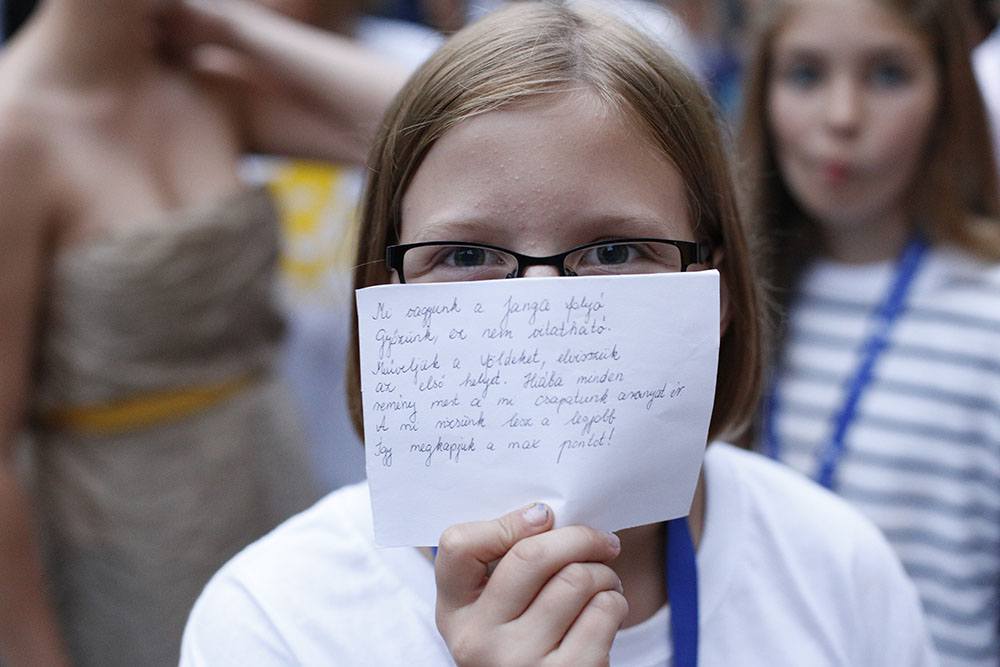 Mi vagyunk a Janga folyó
Győzünk, ez nem vitatható.
Műveljük a földeket, elvisszük
az első helyet. Hiába minden
remény mert a mi csapatunk aranyat ír
A mi rizsünk lesz a legjobb
Így megkapjuk a max pontot!